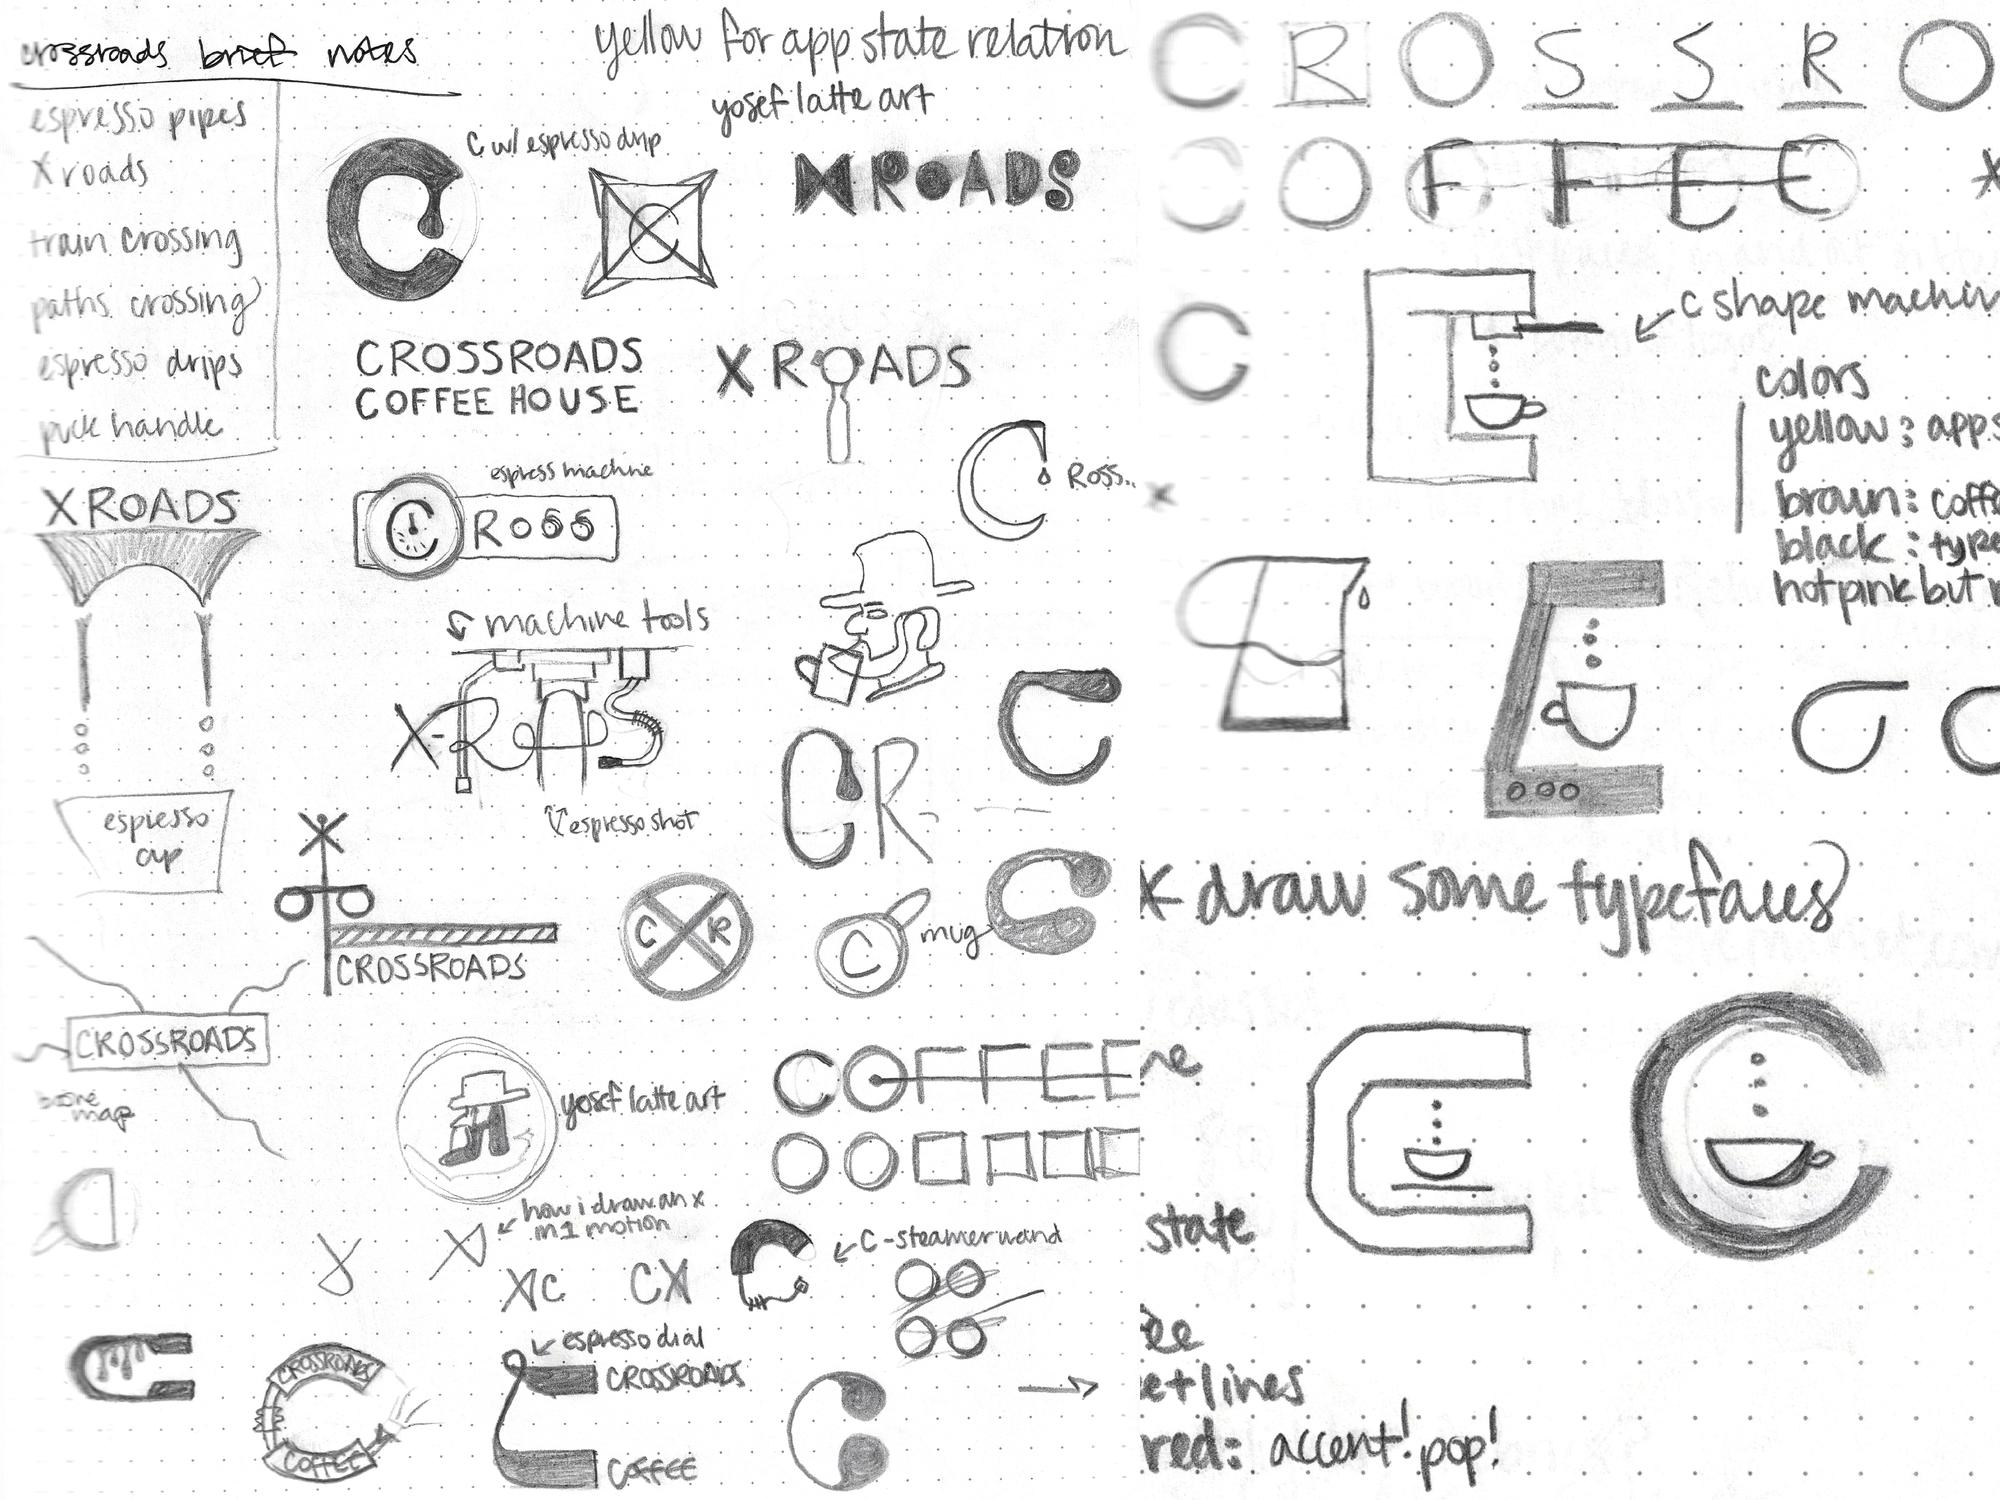 crossroads brief notes
espresso pipes
X roads
train crossing
paths crossing
espresso drips
puck handle
yellow for app state relation
yosef latte art
C w/ espresso drip
C
XROADS
CROSSROADS
COFFEE HOUSE
XROADS
C Ross..
espress machine
C Ross
XROADS
espresso
cup
machine tools
X-ROADS
espresso shot
CR
C
CROSSROADS
C R
C
mug
CROSSROADS
boone
map
yosef latte art
COFFEE
how i draw an x
in 1 motion
XC
CX
C-steamer wand
espresso dial
CROSSROADS
COFFEE
CROSSROADS
COFFEE
CROSSRO
COFFEE
C
C shape machin
colors
yellow: app s
brown: coffe
black: type
hot pink but
* draw some typefaces
ne
state
ee
et lines
red: accent! pop!